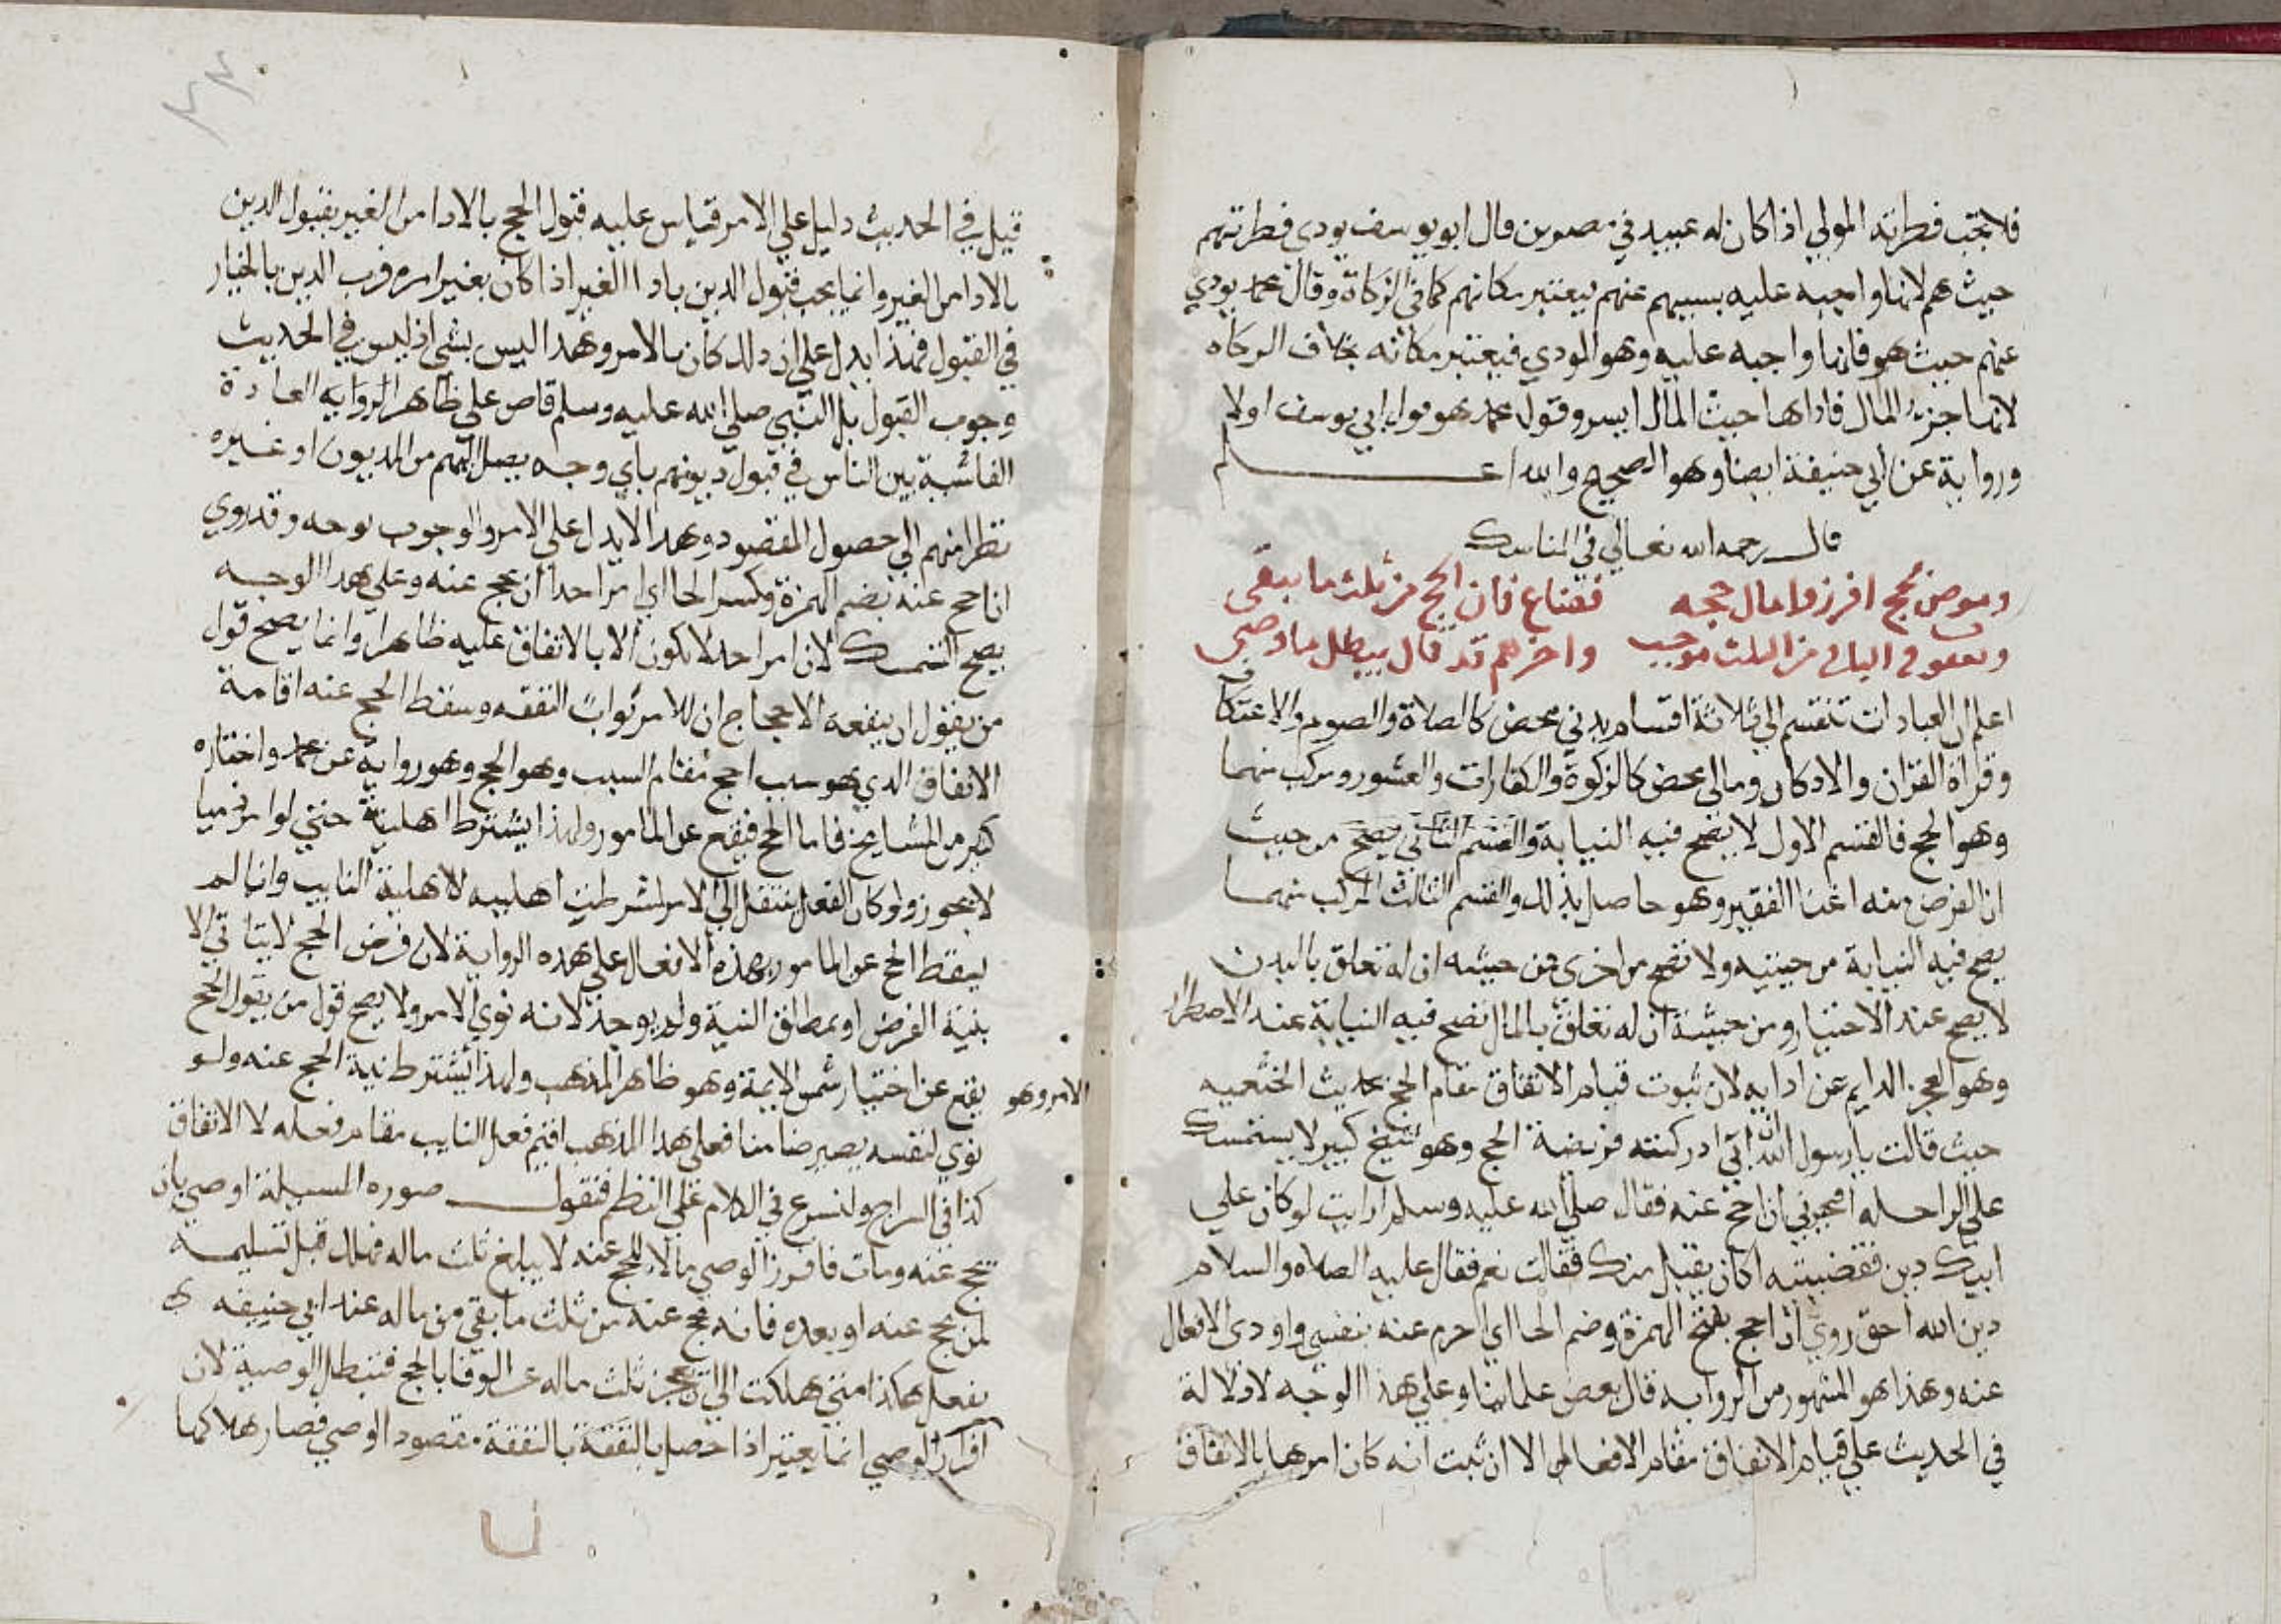 فلا تجب فطرته المولي اذا كان له عبيد في مصرين قال ابو يوسف يودي فطرتهم
حيث هم لانها واجبه عليه بسببهم عنهم فيعتبر مكانهم كما في الزكاة وقال محمد يودي
عنهم حيث هو فانها واجبه عليه وهو المودي فيعتبر مكانه بخلاف الزكاه
لانها جزء المال فاداها حيث المال ايسر وقول محمد هو قول ابي يوسف اولا
ورواية عن ابي حنيفة ايضا وهو الصحيح والله اعلم
قال رحمه الله تعالي في المناسك
وموص بحج افرزوا مال حجه فضاع فان الحج من ثلث ما يبقى
ويعقوب في الباقي من الثلث موجب واخرهم قد قال يبطل ما وصى
اعلم ان العبادات تنقسم الي ثلاثة اقسام بدني محض كالصلاة والصوم والاعتكاف
وقراة القران والاذكار ومالي محض كالزكوة والكفارات والعشور ومركب منهما
وهو الحج فالقسم الاول لا يصح فيه النيابة والقسم الثاني يصح من حيث
ان الغرض منه اغنا الفقير وهو حاصل بذلك والقسم الثالث المركب منهما
يصح فيه النيابة من حيثيه ولا تصح من اخرى فمن حيثيه ان له تعلق بالبدن
لا يصح عند الاختيار ومن حيثية ان له تعلق بالمال تصح فيه النيابة عند الاضطرار
وهو العجز الدايم عن ادايه لان ثبوت قيام الانفاق مقام الحج بحديث الخثعميه
حيث قالت يا رسول الله ان ابي ادركته فريضة الحج وهو شيخ كبير لا يستمسك
علي الراحله افيجزيني ان احج عنه فقال صلي الله عليه وسلم ارايت لو كان علي
ابيك دين فقضيتيه اكان يقبل منك فقالت نعم فقال عليه الصلاه والسلام
دين الله احق روي ان احج بفتح الهمزة وضم الحا اي احرم عنه بنفسي واودى الافعال
عنه وهذا هو المشهور من الروايه قال بعض علماينا وعلي هذا الوجه لا دلالة
في الحديث علي قيام الانفاق مقام الافعال الا ان ثبت انه كان امرها بالانفاق
قيل في الحديث دليل علي الامر قياس عليه قبول الحج بالادا من الغير بقبول الدين
بالادا من الغير وانما يجب قبول الدين بادا الغير اذا كان بغير امره فرب الدين بالخيار
في القبول فهذا يدل علي ان ذلك كان بالامر وهذا ليس بشي اذ ليس في الحديث
وجوب القبول بل النبي صلي الله عليه وسلم قاس علي ظاهر الروايه العادة
الفاشية بين الناس في قبول ديونهم باي وجه يصل اليهم من المديون او غيره
نظرا منهم الي حصول المقصود وهذا لا يدل علي الامر والوجوب بوجه وقد روي
ان احج عنه بضم الهمزة وكسر الحا اي امر احدا ان يحج عنه وعلي هذا الوجه
يصح التمسك لان امر احد لا يكون الا بالانفاق عليه ظاهرا وانما يصح قول
من يقول ان ينفعه الاحجاج ان للامر ثواب النفقه وسقط الحج عنه اقامة
الانفاق الذي هو سبب احج مقام السبب وهو الحج وهو رواية عن محمد واختاره
كثير من المشايخ فاما الحج فيقع عن المامور ولهذا يشترط اهليته حتي لو امر ذميا
لا يجوز ولو كان الفعل ينتقل الي الامر لشرطت اهليه لاهلية النايب وانما لم
يسقط الحج عن المامور بهذه الافعال علي هذه الرواية لان فرض الحج لا يتاتي الا
بنية الفرض او بمطلق النية ولم يوجد لانه نوي الامر ولا يصح قول من يقول الحج
يقع عن اختيار شمس الايمة وهو ظاهر المذهب ولهذا يشترط نية الحج عنه ولو
الامر وهو
نوي لنفسه يصير ضامنا فعلي هذا المذهب اقيم فعل النايب مقام فعله لا الانفاق
كذا في السراج ولنسرع في الكلام علي النظم فنقول صوره المسيلة اوصي بان
يحج عنه ومات فافرز الوصي مالا للحج عنه لا يبلغ ثلث ماله فهلك قبل تسليمه
لمن يحج عنه او بعده فانه يحج عنه من ثلث ما بقي من ماله عند ابي حنيفه
يفعل هكذا متي هلكت الي ان يعجز ثلث ماله عن الوفا بالحج فتبطل الوصية لان
افراز الوصي انما يعتبر اذا حصل بالنفقة بالنفقة مقصود الوصي فصار هلاكها